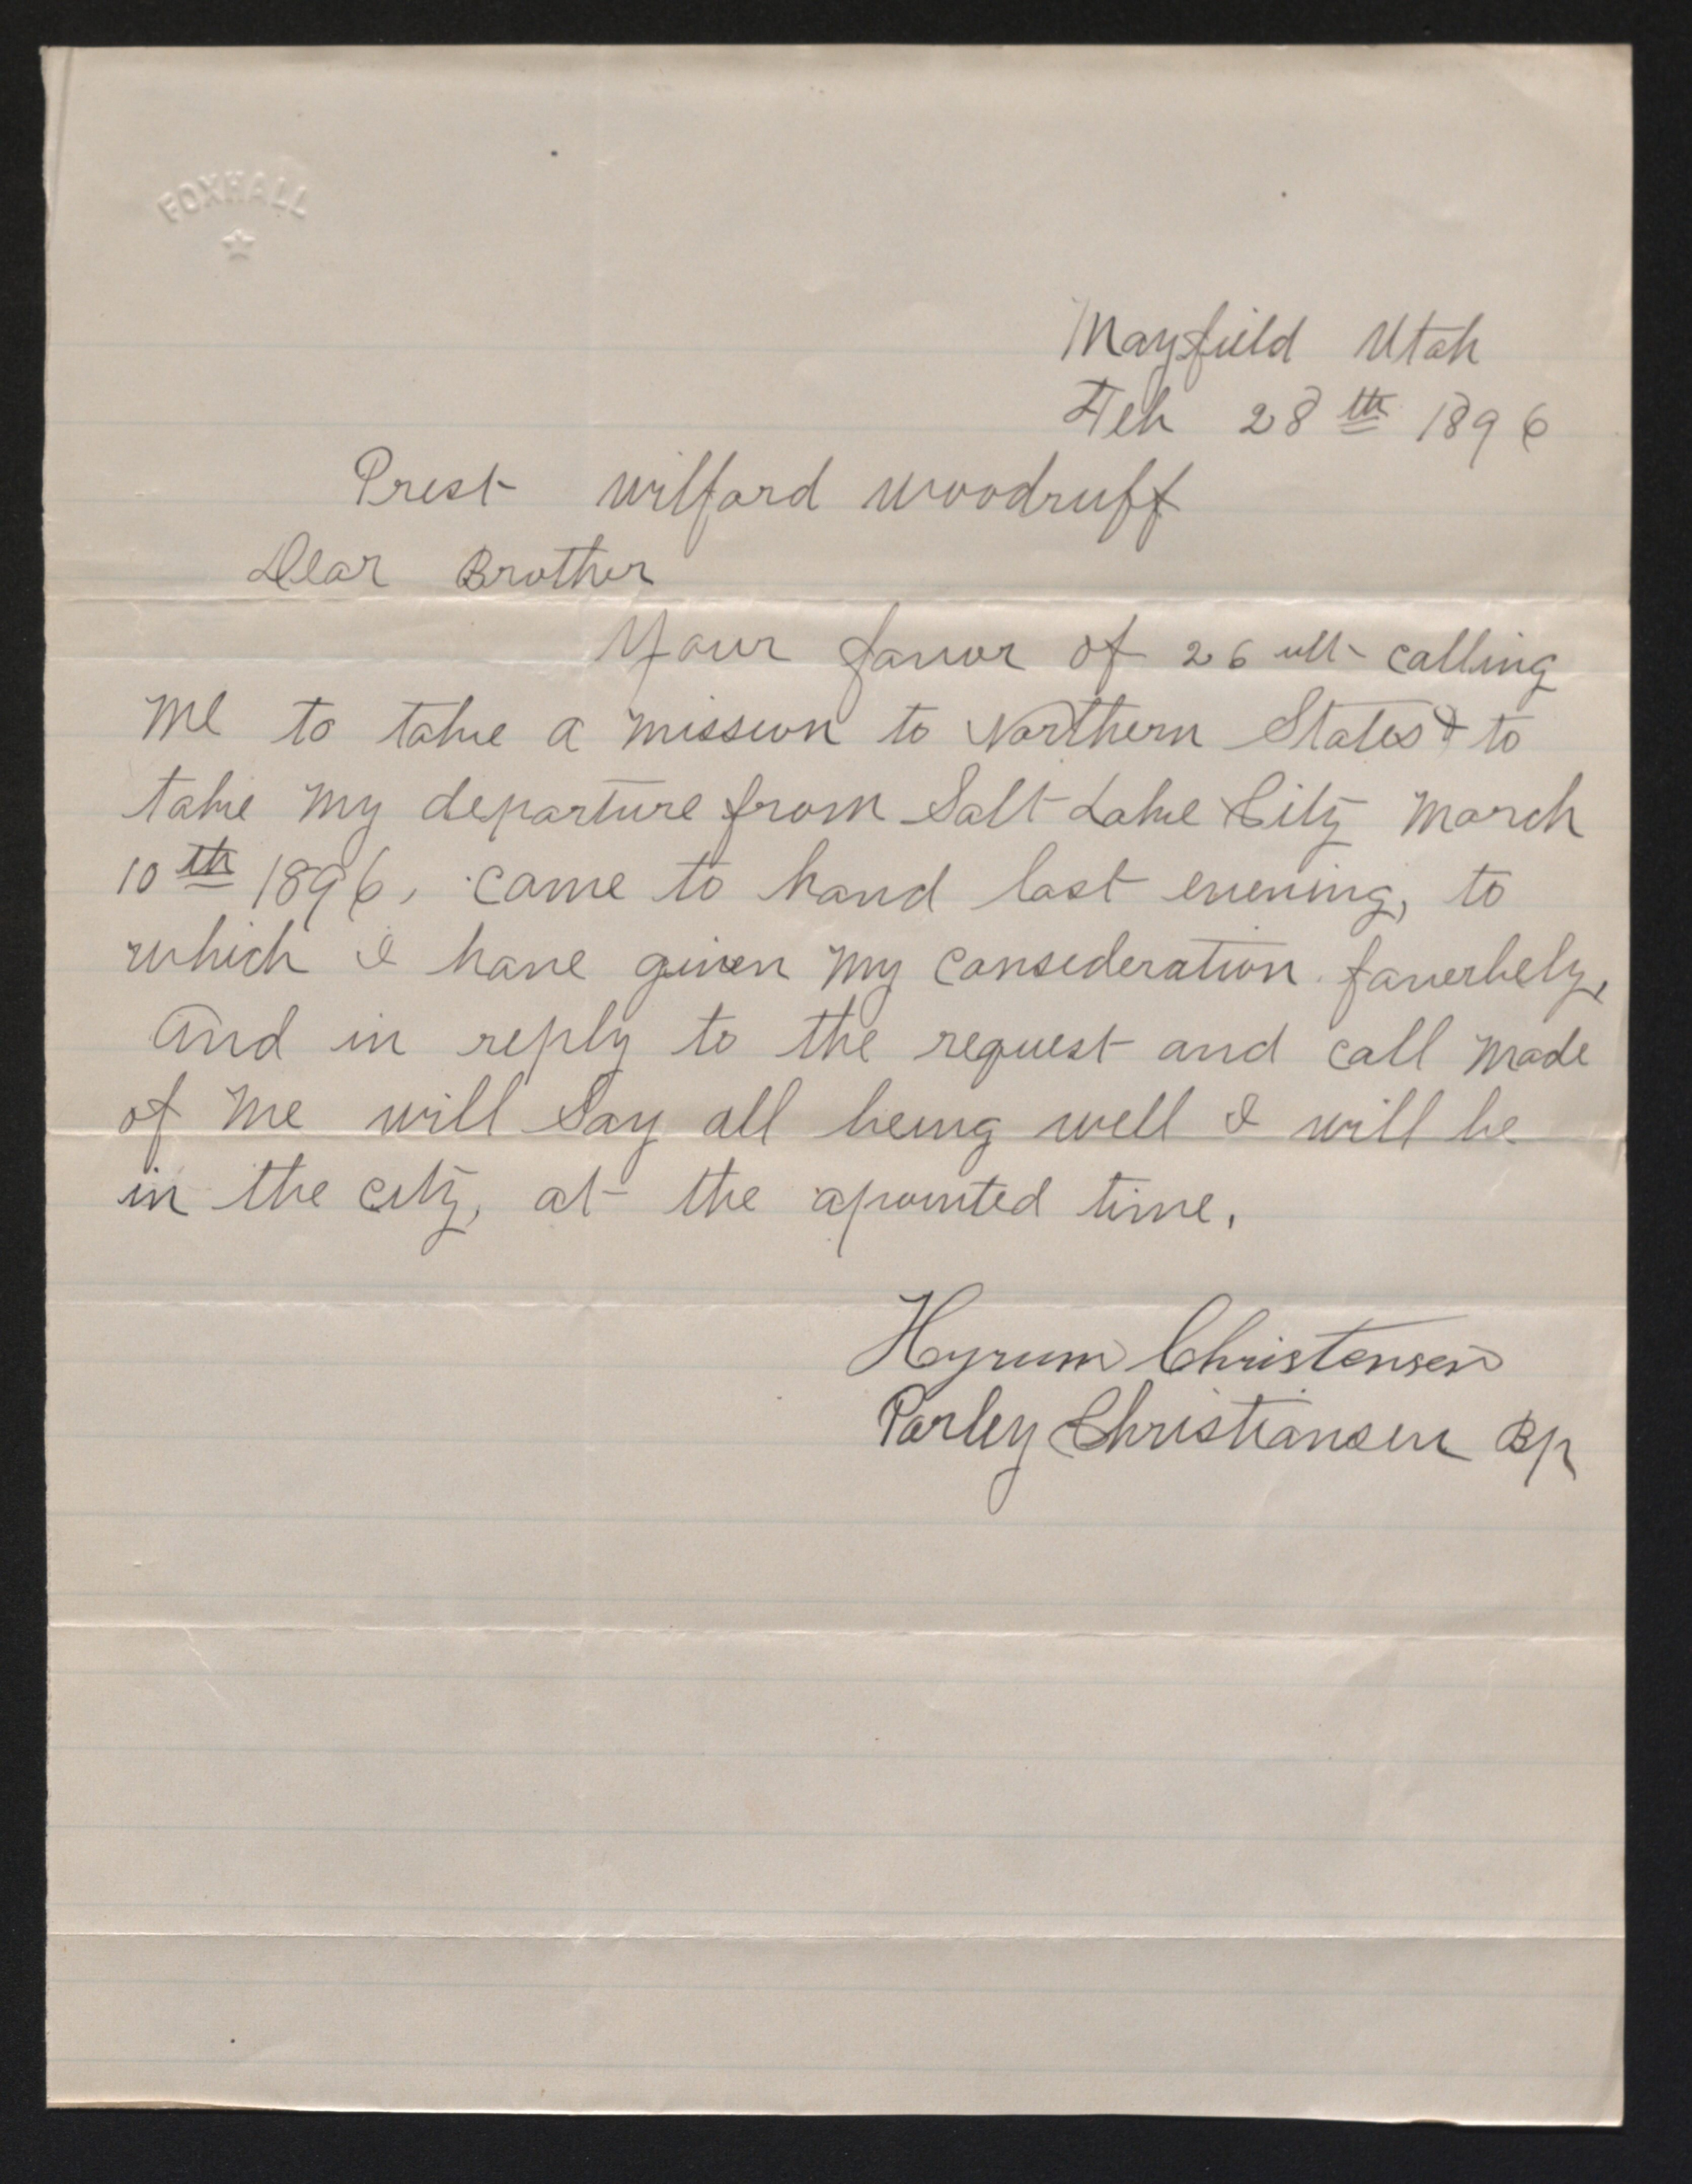 FOXHALL
Mayfield Utah
Feb 28th 1896
Prest Wilford Woodruff
Dear Brother
Your favor of 26 ult calling
me to take a mission to Northern States & to
take my departure from Salt Lake City March
10th 1896, came to hand last evening, to
which I have given my consideration faverbely,
And in reply to the request and call made
of me will say all being well I will be
in the city, at the apointed time.
Hyrum Christensen
Parley Christiansen Bp